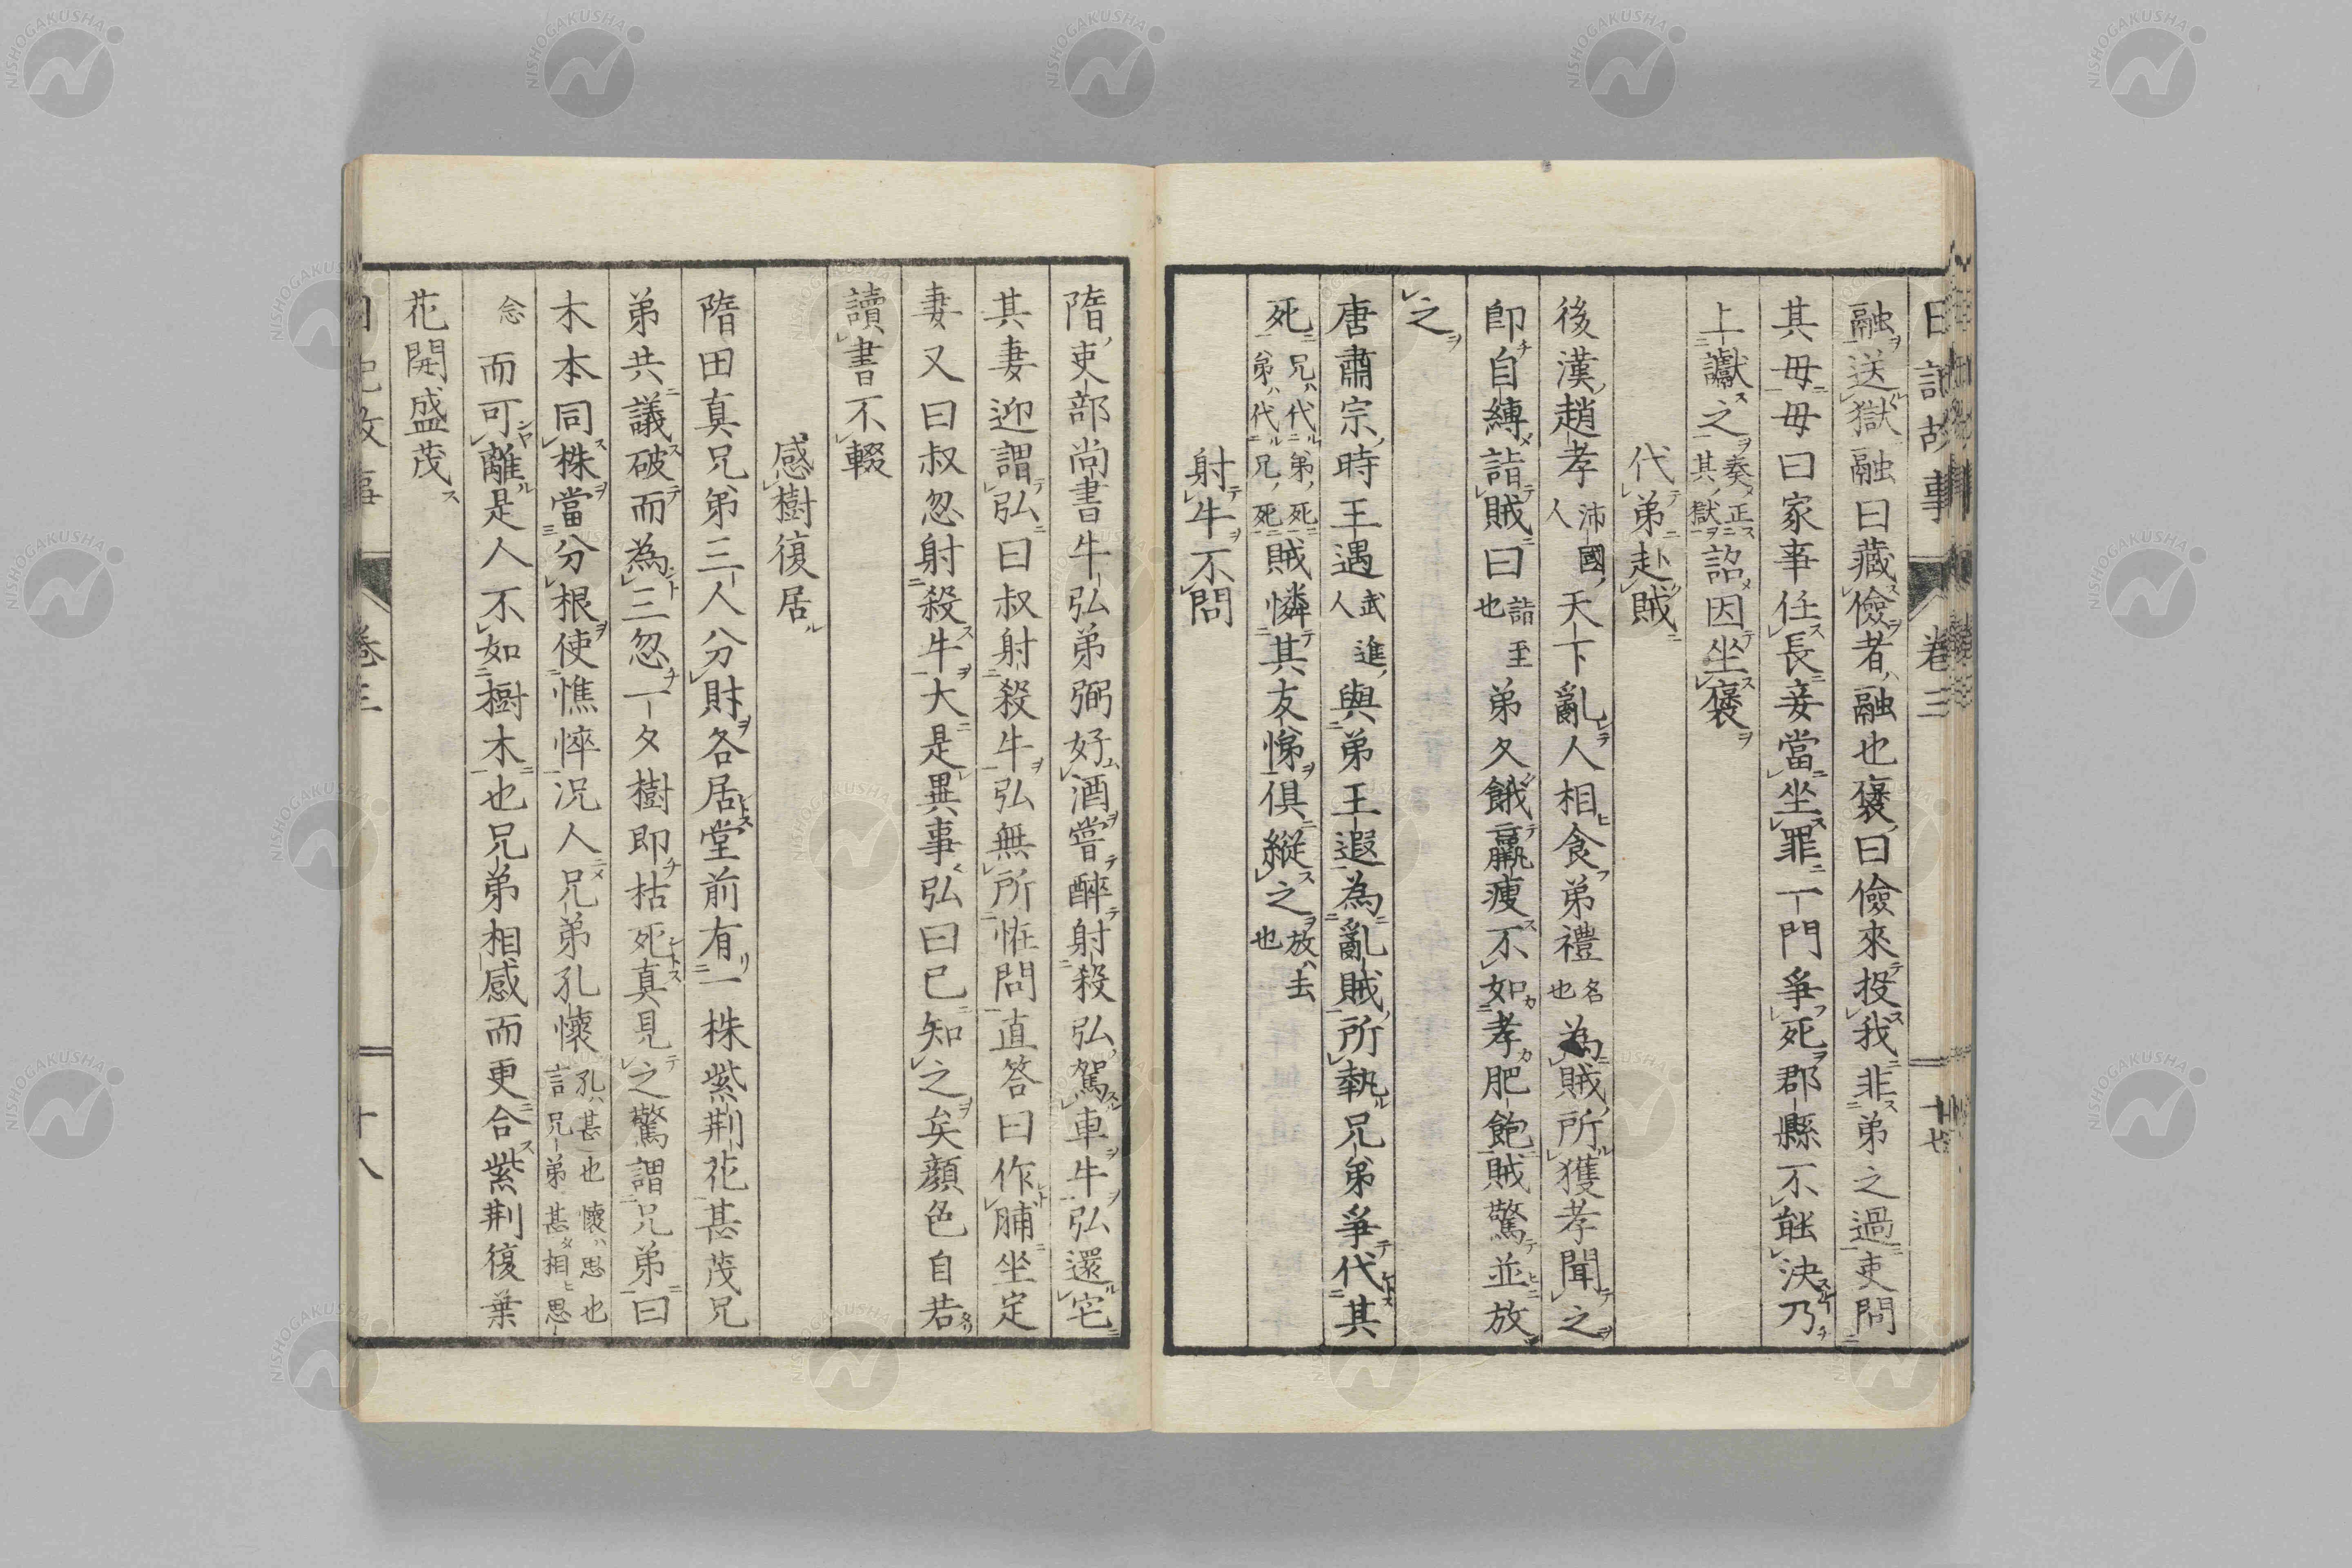 日記故事 卷三 十七
融送獄融曰藏儉者融也褒曰儉來投我非弟之過吏問
其母母曰家事任長妾當坐罪一門爭死郡縣不能決乃
上讞之奏正其獄詔因坐褒
代弟赴賊
後漢趙孝沛國人天下亂人相食弟禮名也為賊所獲孝聞之
即自縛詣賊曰詣至也弟久餓羸瘦不如孝肥飽賊驚並放
之
唐肅宗時王遇武進人與弟王遐為亂賊所執兄弟爭代其
死兄代弟死弟代兄死賊憐其友悌俱縱之放去也
射牛不問
隋吏部尚書牛弘弟弼好酒嘗醉射殺弘駕車牛弘還宅
其妻迎謂弘曰叔射殺牛弘無所怪問直答曰作脯坐定
妻又曰叔忽射殺牛大是異事弘曰已知之矣顏色自若
讀書不輟
感樹復居
隋田真兄弟三人分財各居堂前有一株紫荆花甚茂兄
弟共議破而為三忽一夕樹即枯死真見之驚謂兄弟曰
木本同株當分根使憔悴況人兄弟孔懷孔甚也懷思也言兄弟甚相思
念而可離是人不如樹木也兄弟相感而更合紫荆復葉
花開盛茂
日記故事 卷三 十八
NISHOGAKUSHA